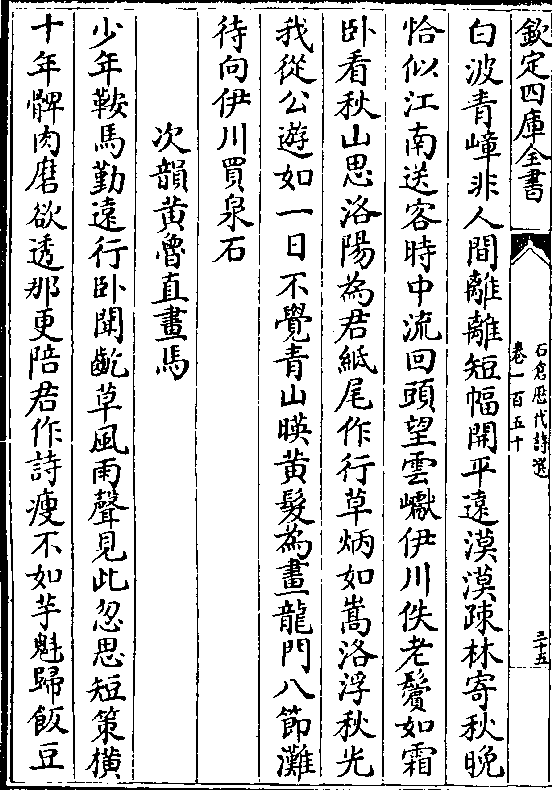 欽定四庫全書
石倉歷代詩選
卷一百五十
三十五
白波青嶂非人間離離短幅開平遠漠漠疎林寄秋晚
恰似江南送客時中流回頭望雲巘伊川佚老鬢如霜
卧看秋山思洛陽為君紙尾作行草炳如嵩洛浮秋光
我從公遊如一日不覺青山暎黄髮為畫龍門八節灘
待向伊川買泉石
次韻黄魯直畫馬
少年鞍馬勤遠行卧聞齕草風雨聲見此忽思短策橫
十年髀肉磨欲透那更陪君作詩瘦不如芋魁歸飯豆